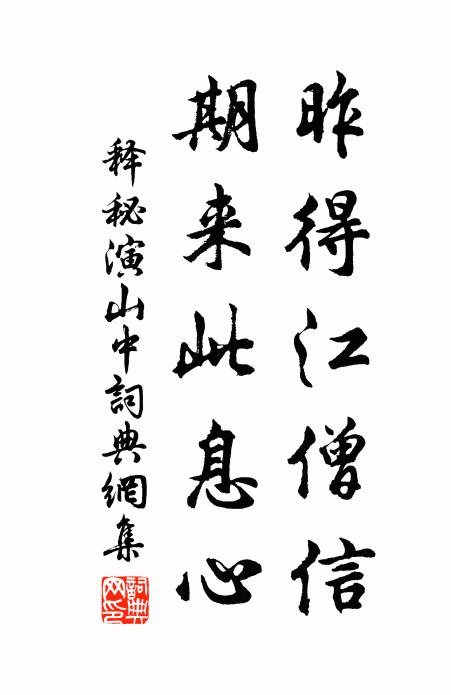 昨得江僧信
期来此息心
释秘演山中詞典網集
詞典网印